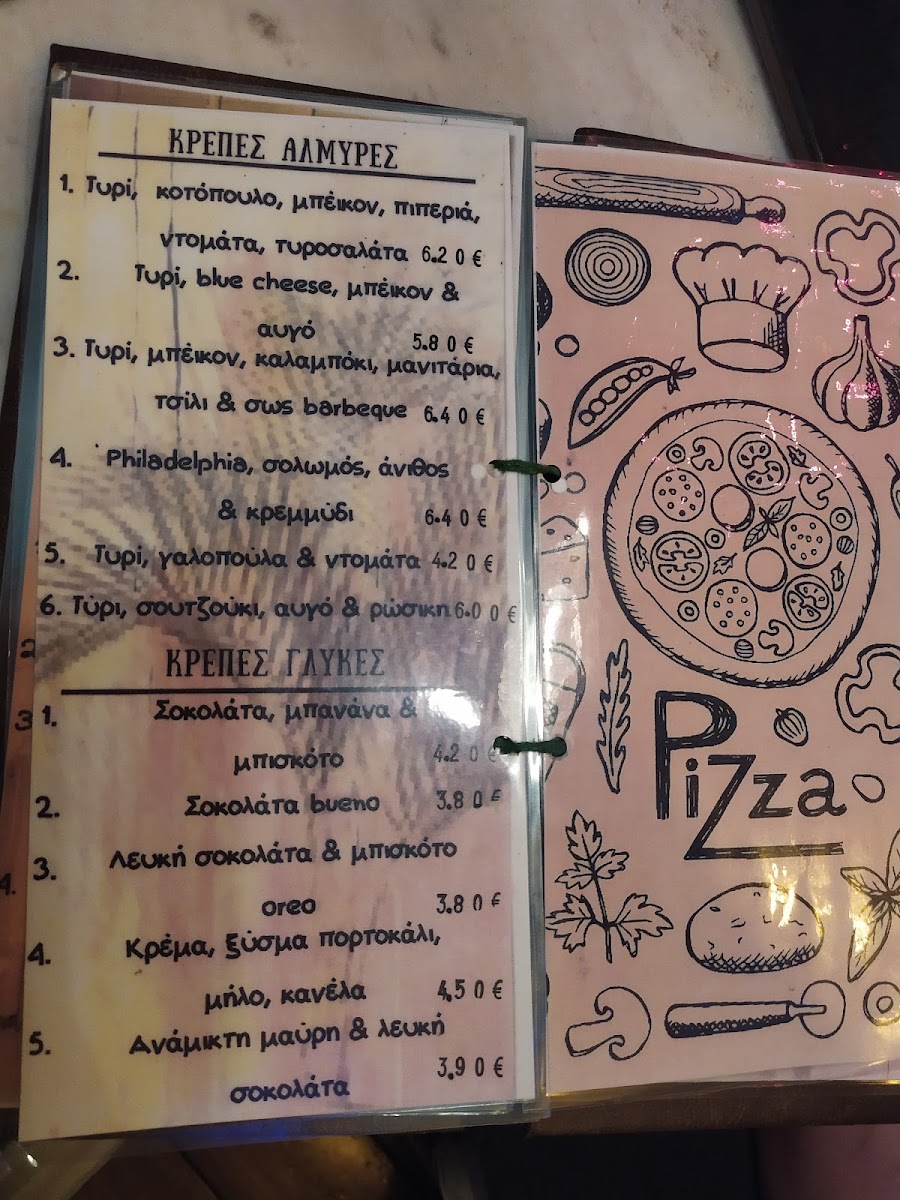 ΚΡΕΠΕΣ ΑΛΜΥΡΕΣ
1. Τυρί, κοτόπουλο, μπέικον, πιπεριά,
ντομάτα, τυροσαλάτα 6.20 €
2. Τυρί, blue cheese, μπέικον &
αυγό 5.80 €
3. Τυρί, μπέικον, καλαμπόκι, μανιτάρια,
τσίλι & σως barbeque 6.40 €
4. Philadelphia, σολωμός, άνιθος
& κρεμμύδι 6.40 €
5. Τυρί, γαλοπούλα & ντομάτα 4.20 €
6. Τύρι, σουτζούκι, αυγό & ρώσικη 6.00 €
ΚΡΕΠΕΣ ΓΛΥΚΕΣ
1. Σοκολάτα, μπανάνα &
μπισκότο 4.20 €
2. Σοκολάτα bueno 3.80 €
3. Λευκή σοκολάτα & μπισκότο
oreo 3.80 €
4. Κρέμα, ξύσμα πορτοκάλι,
μήλο, κανέλα 4,50 €
5. Ανάμικτη μαύρη & λευκή
σοκολάτα 3.90 €
Pizza